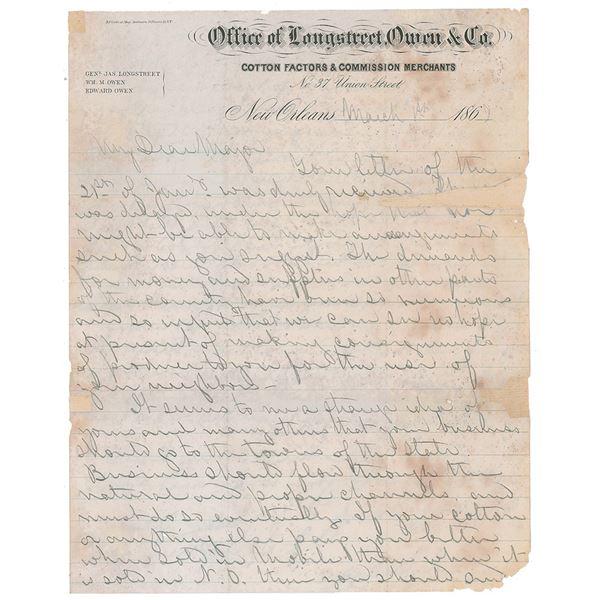 Office of Longstreet, Owen & Co.
COTTON FACTORS & COMMISSION MERCHANTS
GENL JAS. LONGSTREET
WM. M. OWEN
EDWARD OWEN
No. 37 Union Street
New Orleans March 1st 186
My Dear Major
Your letter of the
21st of Jany was duly received
was delayed under the hope that we
might be able to make arrangements
such as you suggest. The demands
for money and supplies in other parts
of the country have been so numerous
and so urgent that we can see no hope
at present of making consignments
of produce to you for the use of
your neighbors—
It seems to me a strange idea of
yours and many others that your business
should go to the towns of the State.
Business should flow through the
natural and proper channels and
must do so eventually. If your cotton
or anything else pays you better
when sold in Mobile than when it
is sold in N.O. then you should